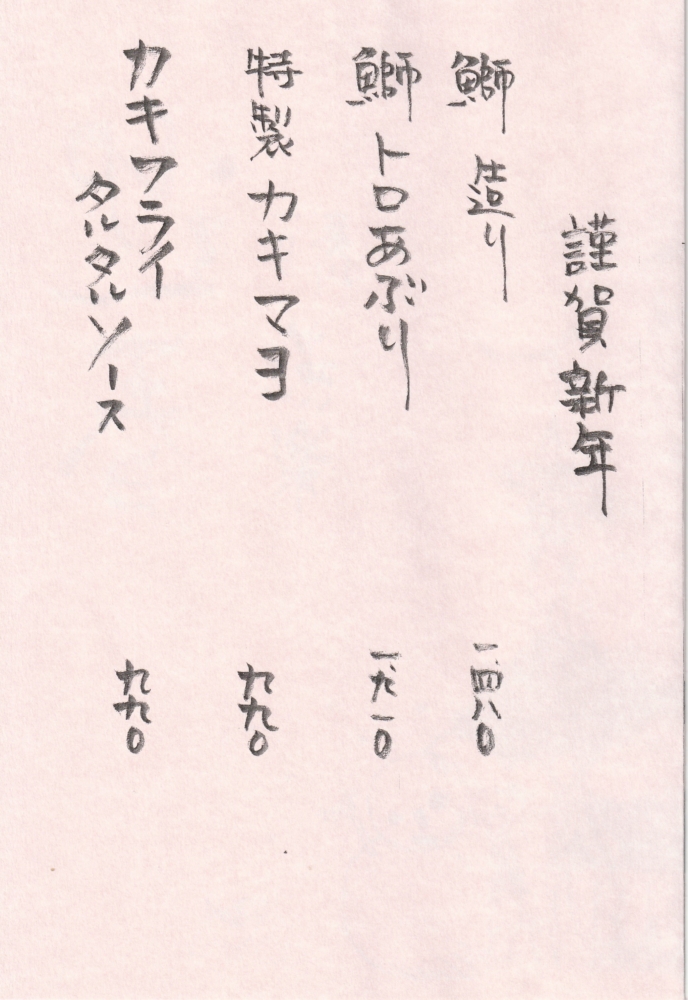 謹賀新年
鰤 造り 一、四八〇
鰤 トロあぶり 一、九一〇
特製 カキマヨ 九九〇
カキフライ
タルタルソース 九九〇